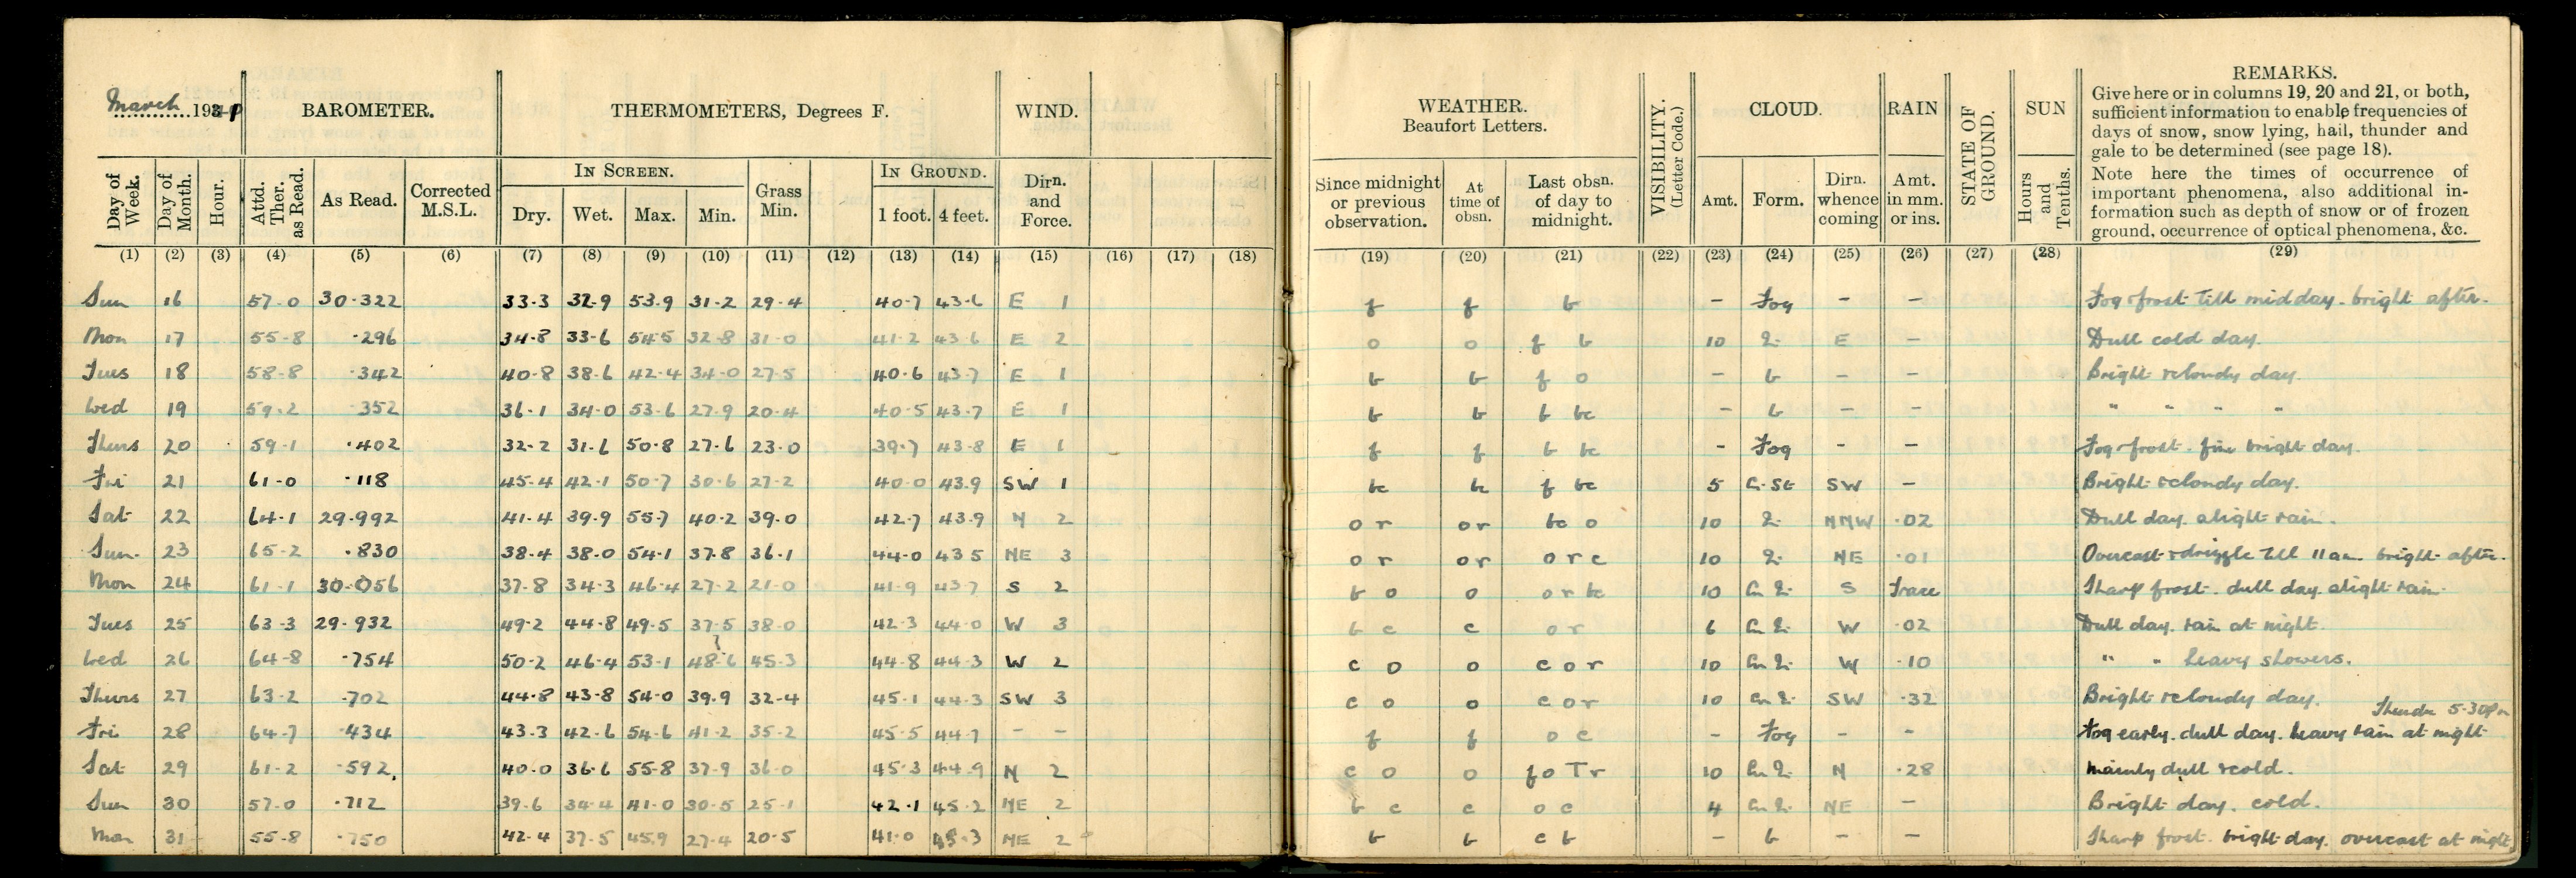 March 1941 BAROMETER. THERMOMETERS, Degrees F. WIND. WEATHER. Beaufort Letters. VISIBILITY. (Letter Code.) CLOUD. RAIN STATE OF GROUND. SUN REMARKS.
Give here or in columns 19, 20 and 21, or both,
sufficient information to enable frequencies of
days of snow, snow lying, hail, thunder and
gale to be determined (see page 18).
Note here the times of occurrence of
important phenomena, also additional in-
formation such as depth of snow or of frozen
ground, occurrence of optical phenomena, &c.
IN SCREEN. IN GROUND.
Day of Week. Day of Month. Hour. Attd. Ther. as Read. As Read. Corrected M.S.L. Dry. Wet. Max. Min. Grass Min. 1 foot. 4 feet. Dirn. and Force. Since midnight or previous observation. At time of obsn. Last obsn. of day to midnight. Amt. Form. Dirn. whence coming Amt. in mm. or ins. Hours and Tenths.
(1) (2) (3) (4) (5) (6) (7) (8) (9) (10) (11) (12) (13) (14) (15) (16) (17) (18) (19) (20) (21) (22) (23) (24) (25) (26) (27) (28) (29)
Sun 16 57.0 30.322 33.3 32.9 53.9 31.2 29.4 40.7 43.6 E 1 f f b - Fog - - Fog & frost till midday. bright after.
Mon 17 55.8 .296 34.8 33.6 54.5 32.8 31.0 41.2 43.6 E 2 o o f b 10 E - Dull cold day.
Tues 18 58.8 .342 40.8 38.6 42.4 34.0 27.5 40.6 43.7 E 1 b b f o - b - - Bright & cloudy day.
Wed 19 59.2 352 36.1 34.0 53.6 27.9 20.4 40.5 43.7 E 1 b b b bc - b - - " " " "
Thurs 20 59.1 .402 32.2 31.6 50.8 27.6 23.0 39.7 43.8 E 1 f f b bc - Fog - - Fog & frost. fine bright day.
Fri 21 61.0 .118 45.4 42.1 50.7 30.6 27.2 40.0 43.9 SW 1 bc bc f bc 5 SW - Bright & cloudy day.
Sat 22 64.1 29.992 41.4 39.9 55.7 40.2 39.0 42.7 43.9 N 2 o r o r bc o 10 NNW .02 Dull day. slight rain.
Sun. 23 65.2 .830 38.4 38.0 54.1 37.8 36.1 44.0 43.5 NE 3 o r o r o r c 10 NE .01 Overcast & drizzle till 11 am. bright after.
Mon 24 61.1 30.056 37.8 34.3 46.4 27.2 21.0 41.9 43.7 S 2 b o o o r bc 10 S Trace Sharp frost. dull day. slight rain.
Tues 25 63.3 29.932 49.2 44.8 49.5 37.5 38.0 42.3 44.0 W 3 b c c o r 6 W .02 Dull day. rain at night.
Wed 26 64.8 .754 50.2 46.4 53.1 48.6 45.3 44.8 44.3 W 2 c o o c o r 10 W .10 " " heavy showers.
Thurs 27 63.2 .702 44.8 43.8 54.0 39.9 32.4 45.1 44.3 SW 3 c o o c o r 10 SW .32 Bright & cloudy day.
Thunder 5.30pm
Fri 28 64.7 .434 43.3 42.6 54.6 41.2 35.2 45.5 44.7 - - f f o c - Fog - - Fog early. dull day. heavy rain at night
Sat 29 61.2 .592 40.0 36.6 55.8 37.9 36.0 45.3 44.9 N 2 c o o f o T r 10 N .28 mainly dull & cold.
Sun 30 57.0 .712 39.6 34.4 41.0 30.5 25.1 42.1 45.2 NE 2 b c c o c 4 NE - Bright day. cold.
Mon 31 55.8 .750 42.4 37.5 45.9 27.4 20.5 41.0 45.3 NE 2 b b c b - b - - Sharp frost. bright day. overcast at night